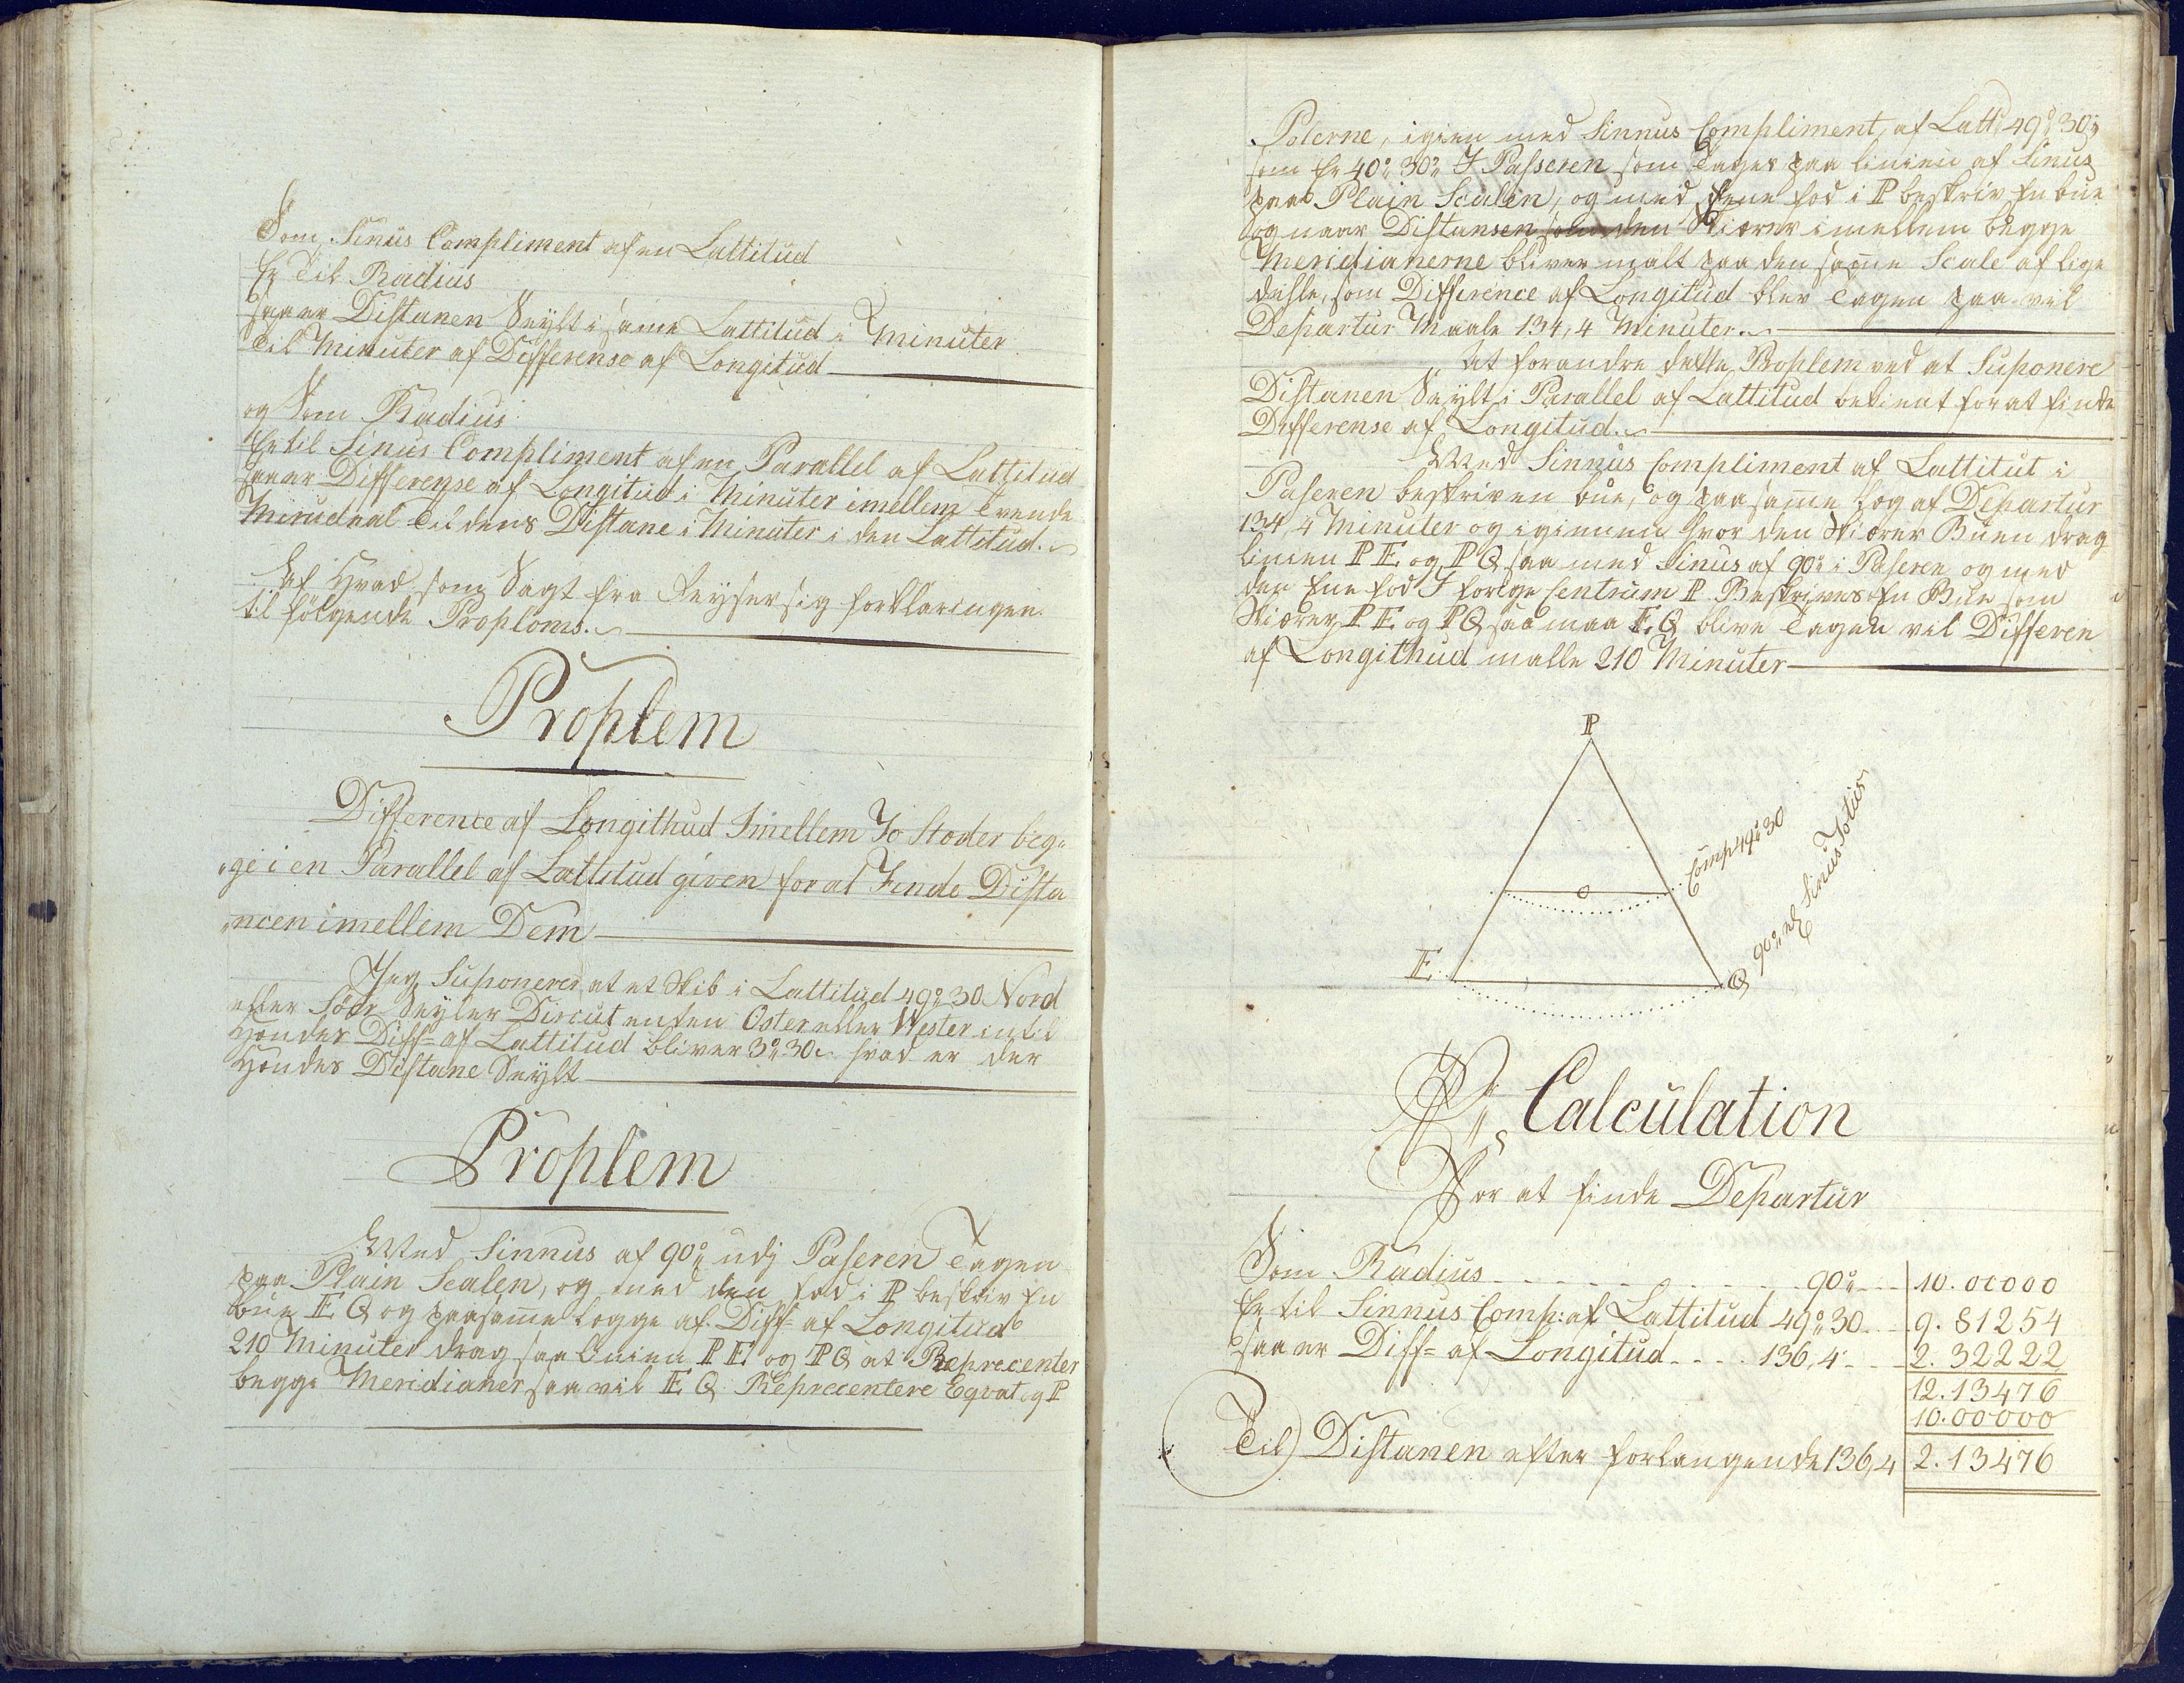 Som Sinus Compliment af en Lattitud
Er til Radius
saa er Distanen Seylt i same Lattitud i Minuter
til Minuter af Differense af Longitud
og Som Radius
Er til Sinus Compliment af en Parallel af Lattitud
saa er Differense af Longitud i Minuter imellem tvende
til dens Distane i Minuter i den Lattitud.
Af Hvad som Sagt fra sig forklaringen
til følgende Proploms.
Proplem
Difference af Longithud Imellem To Stæder beg„
„ge i en Parallel af Lattitud given for at Finde Dista
„ncen imellem Dem
Jeg Suponerer at et Skib i Lattitud 49°30 Nord
eller Sør Seyler Direcut enten Oster eller Wester intil
Hendes Diff= af Lattitud bliver 3°30 hvad er der
Hendes Distane Seylt
Proplem
Med Sinnus af 90° udj Paseren tagen
paa Plain Scalen, og med den fod i P beskriv En
bue E Q og paa same logge af Diff= af Longitud
210 Minuter drag saa Linien P E og P Q at Reprecenter
begge Meridianer saa vil E Q Reprecentere Eqvat og P
Polerne, igien med Sinnus Compliment af Latt: 49°30
som Er 40°30 I Passeren som tages paa linien af Sinus
paa Plain Scalen, og med Eene fod i P beskriv En bue
og naar Distansen som den Skiærer imellem begge
Meridianerne bliver malt paa den same Scale af lige
dehle, som Difference af Longitud blev tagen paa vil
Departur Maale 134,4 Minuter.
At forandre dette Proplem ved at Suponere
Distanen Seylt i Parallel af Lattitud bekient for at finde
Differense af Longitud.
Med Sinnus Compliment af Lattitut i
Paseren beskriven bue, og paa same log af Departur
134,4 Minuter og igiennem hvor den Skiærer Buen drag
linien P E og P Q saa med Sinus af 90° i Paseren og med
den Ene fod I forige Centrum P Beskrives En Bue som
Skiærer P E og P Q saa maa E Q blive tagen vil Differen
af Longithud malle 210 Minuter
P
Comp 49°30
E
Q
90° ed Sinus Totus
Calculation
For at finde Departur
Som Radius 90° 10.00000
Er til Sinnus Comp: af Lattitud 49°30 9.81254
saa er Diff= af Longitud 136,4 2.32222
12.13476
10.00000
Til Distanen efter forlangende 136,4 2.13476